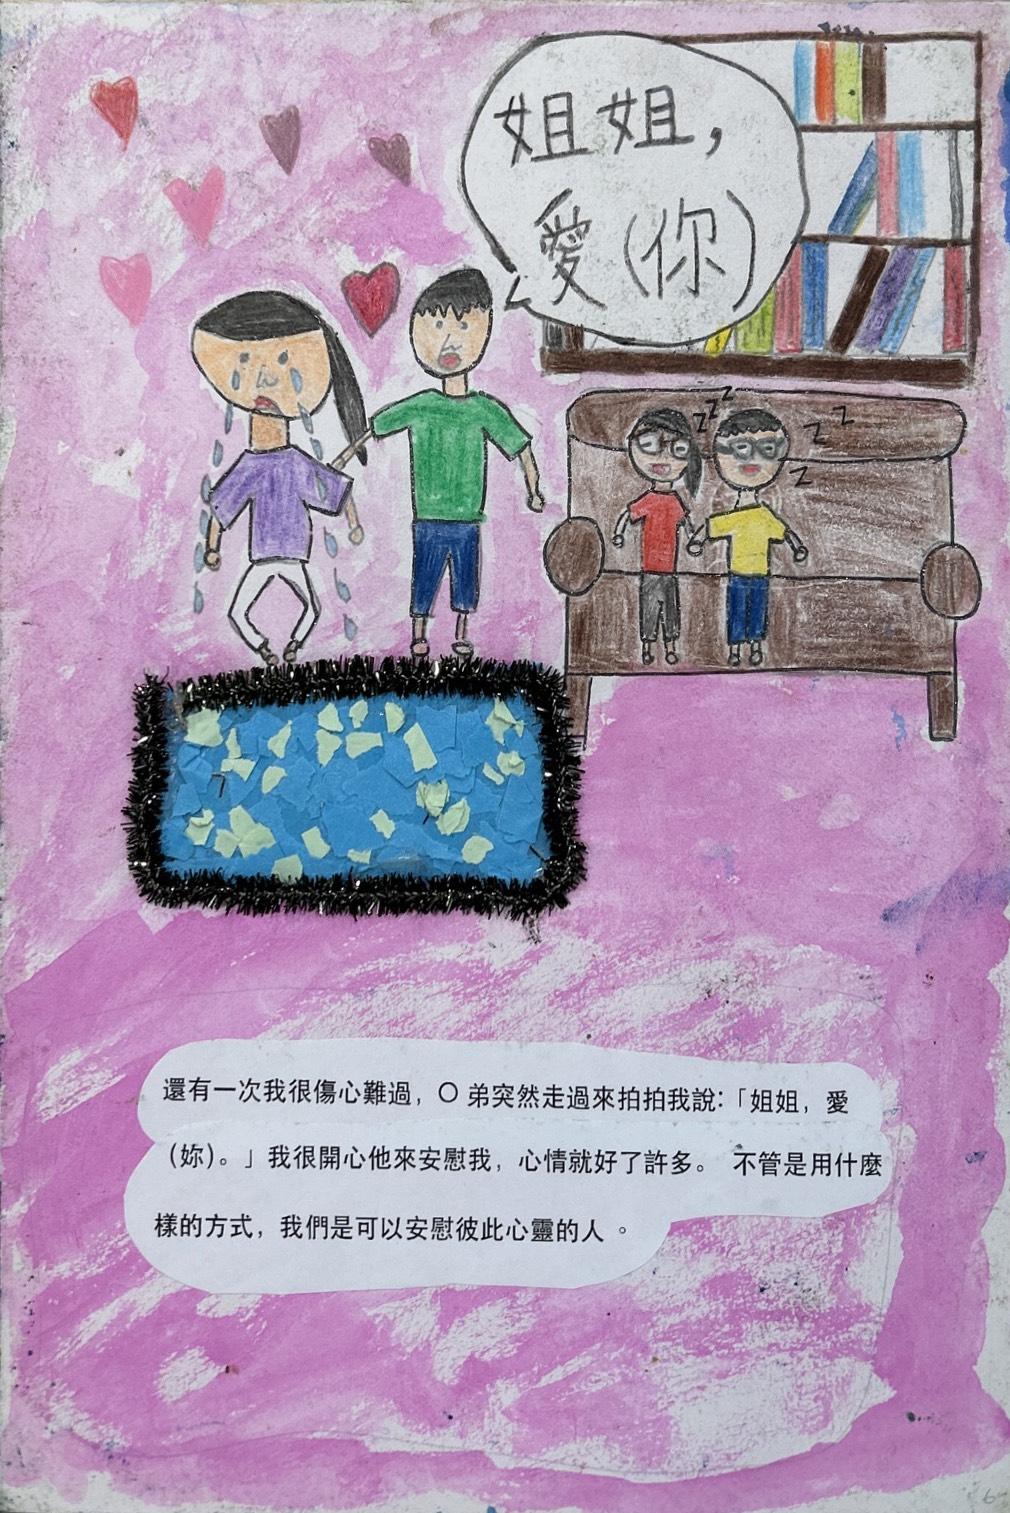 姐姐，
愛(你)
z z z z
z z z
還有一次我很傷心難過，○弟突然走過來拍拍我說:「姐姐，愛
(妳)。」我很開心他來安慰我，心情就好了許多。 不管是用什麼
樣的方式，我們是可以安慰彼此心靈的人。
6